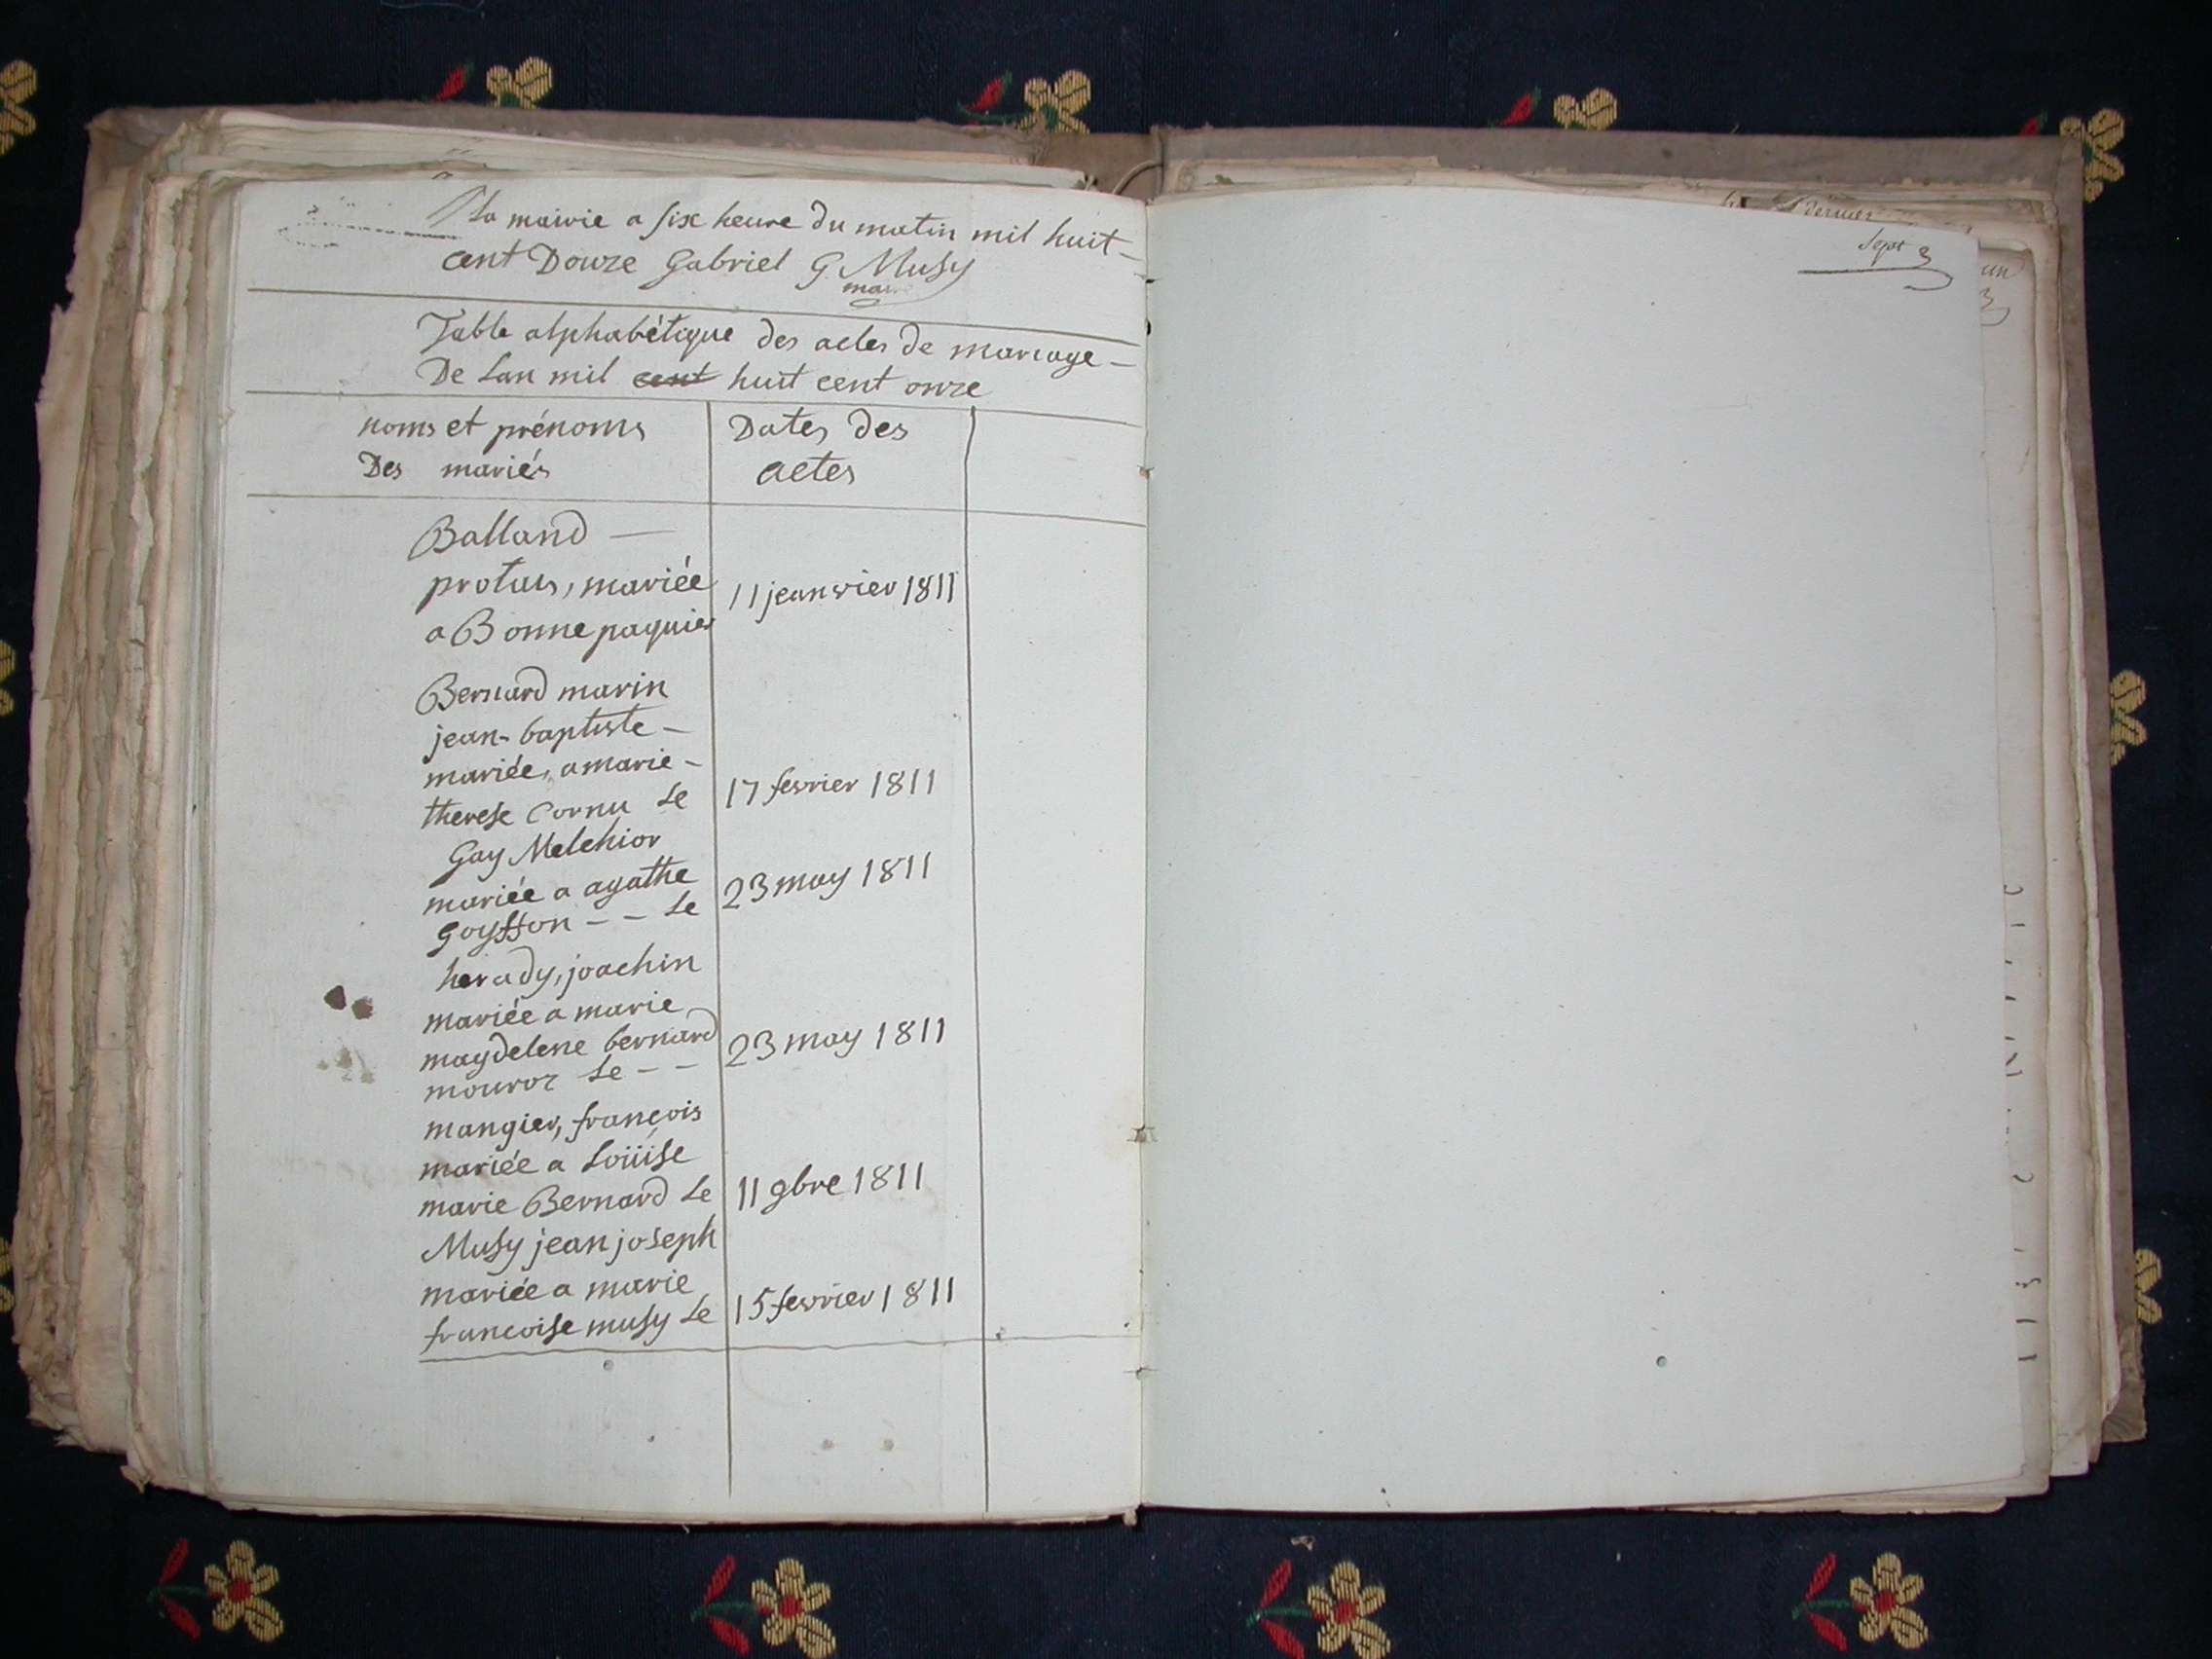 La mairie a six heure du matin mil huit-
cent Douze Gabriel G. Musy
maire
Table alphabétique des actes de mariage -
De Lan mil cent huit cent onze
noms et prénoms
Des mariés
Dates des
actes
Balland —
protais, mariée
a Bonne paquier
11 jeanvier 1811
Bernard marin
jean-baptiste -
mariée, a marie -
therese Cornu Le
17 fevrier 1811
Gay Melchior
mariée a agathe
Goysson - - Le
23 may 1811
herady, joachin
mariée a marie
magdelene bernard
mouroz Le - -
23 may 1811
mangier, françois
mariée a Loüise
marie Bernard Le
11 9bre 1811
Musy jean joseph
mariée a marie
francoise musy Le
15 fevrier 1811
dernier
Sept